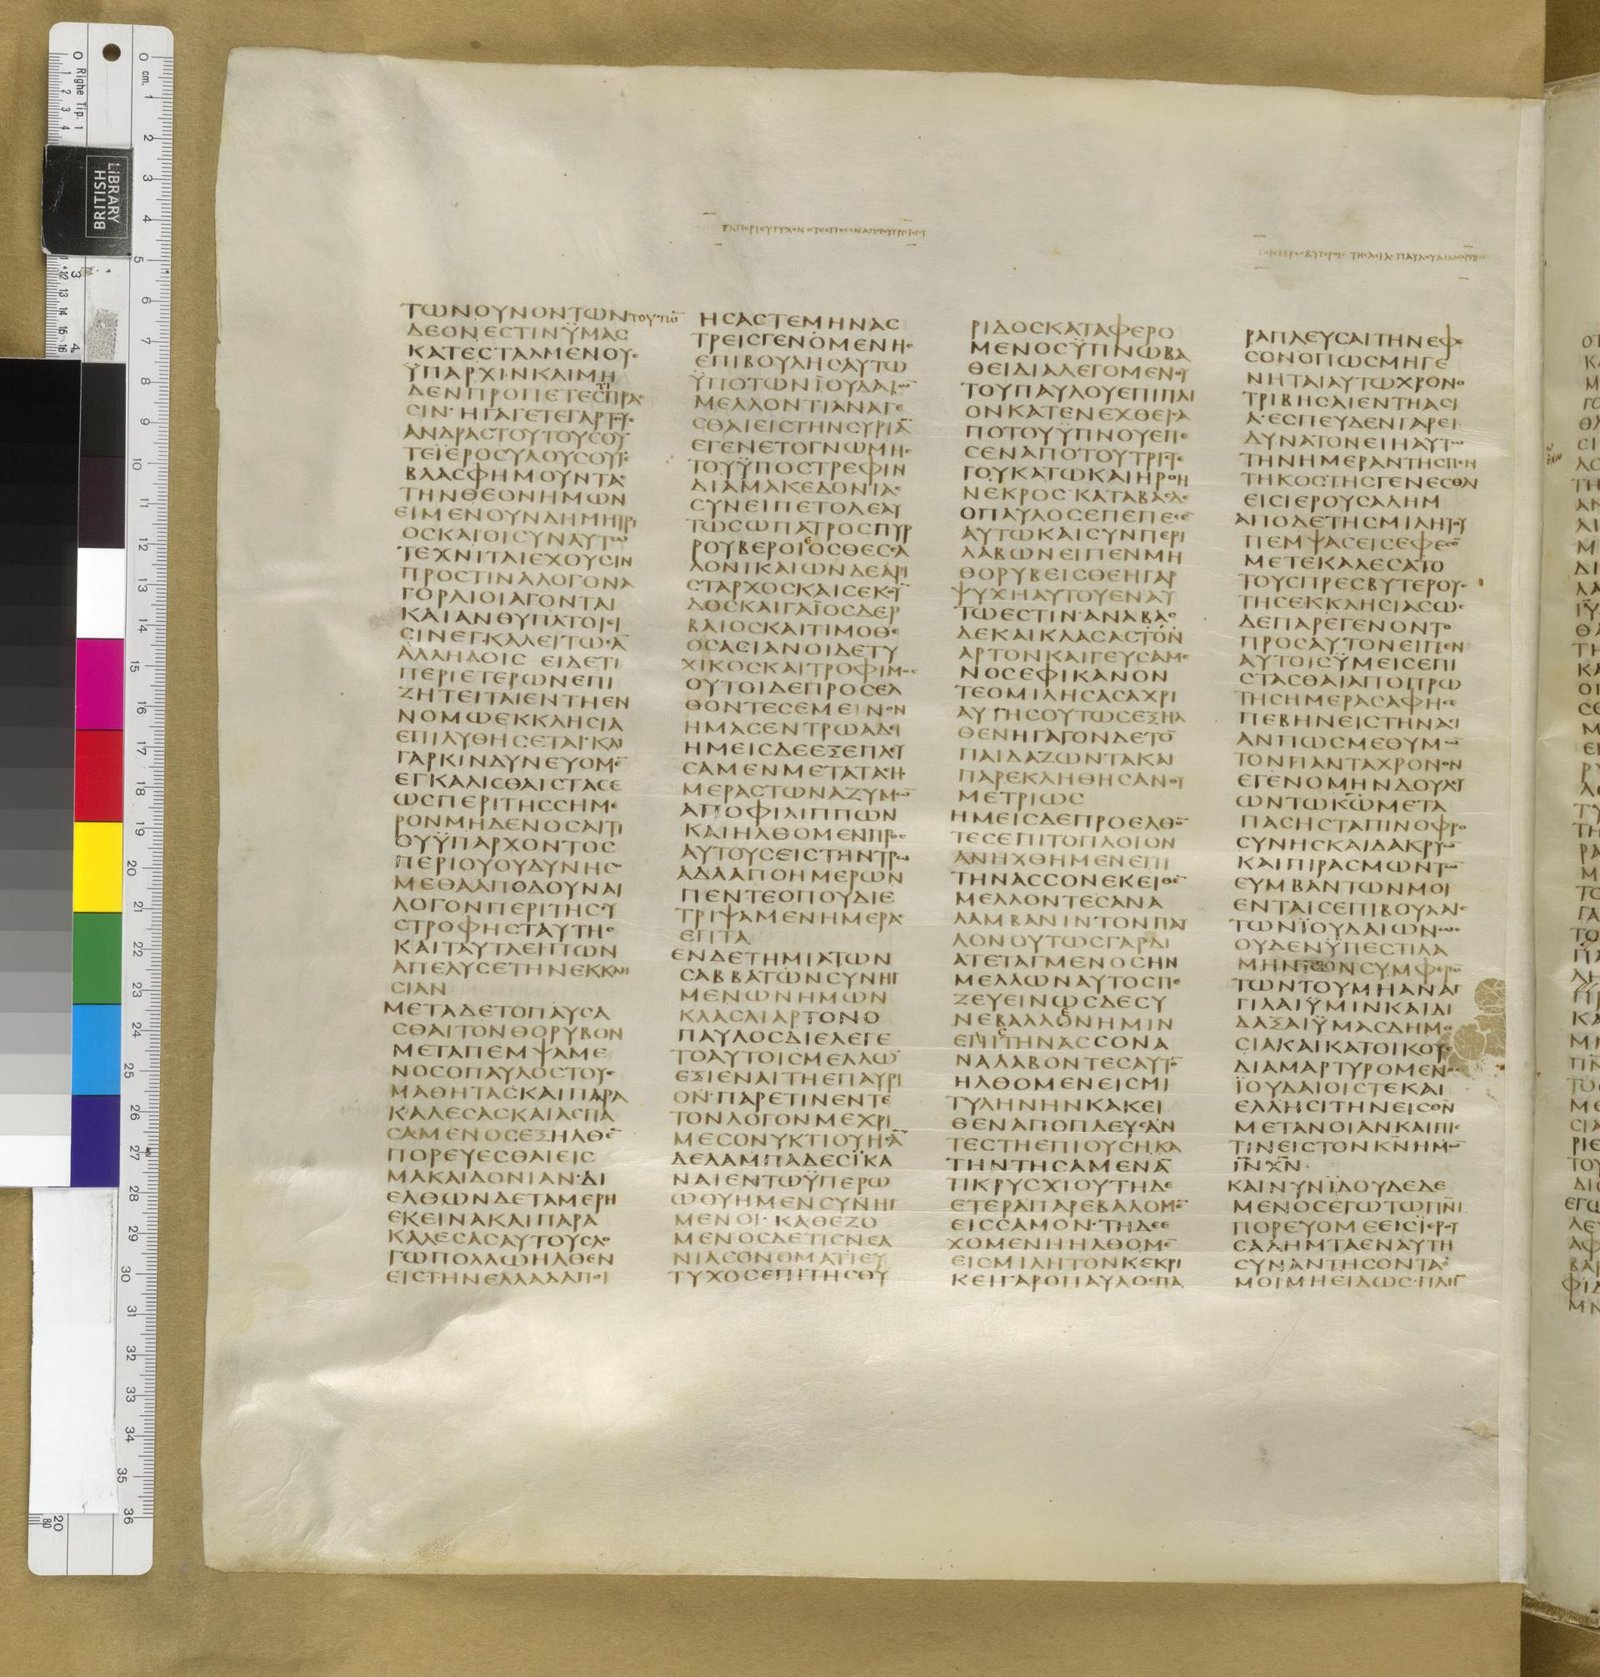 ΤΩΝΟΥΝΟΝΤΩΝΤΟΥΤΩ
ΔΕΟΝΕΣΤΙΝΫΜΑΣ
ΚΑΤΕΣΤΑΛΜΕΝΟΥΣ
ΫΠΑΡΧΙΝΚΑΙΜΗ
ΔΕΝΠΡΟΠΕΤΕΣΠΡΑΣ
ΣΙΝ·ΗΓΑΓΕΤΕΓΑΡΤΟΥΣ
ΑΝΔΡΑΣΤΟΥΤΟΥΣΟΥ
ΤΕΪΕΡΟΣΥΛΟΥΣΟΥΤΕ
ΒΛΑΣΦΗΜΟΥΝΤΑΣ
ΤΗΝΘΕΟΝΗΜΩΝ
ΕΙΜΕΝΟΥΝΔΗΜΗΤΡΙ
ΟΣΚΑΙΟΙΣΥΝΑΥΤΩ
ΤΕΧΝΙΤΑΙΕΧΟΥΣΙΝ
ΠΡΟΣΤΙΝΑΛΟΓΟΝΑ
ΓΟΡΑΙΟΙΑΓΟΝΤΑΙ
ΚΑΙΑΝΘΥΠΑΤΟΙΕΙ
ΣΙΝΕΓΚΑΛΕΙΤΩΣΑ̅
ΑΛΛΗΛΟΙΣ ΕΙΔΕΤΙ
ΠΕΡΙΕΤΕΡΩΝΕΠΙ
ΖΗΤΕΙΤΑΙΕΝΤΗΕΝ
ΝΟΜΩΕΚΚΛΗΣΙΑ
ΕΠΙΛΥΘΗΣΕΤΑΙ·ΚΑΙ
ΓΑΡΚΙΝΔΥΝΕΥΟΜΕ̅
ΕΓΚΑΛΙΣΘΑΙΣΤΑΣΕ
ΩΣΠΕΡΙΤΗΣΣΗΜΕ
ΡΟΝΜΗΔΕΝΟΣΑΙΤΙ
ΟΥΫΠΑΡΧΟΝΤΟΣ
ΠΕΡΙΟΥΟΥΔΥΝΗΣΟ
ΜΕΘΑΑΠΟΔΟΥΝΑΙ
ΛΟΓΟΝΠΕΡΙΤΗΣΣΥ
ΣΤΡΟΦΗΣΤΑΥΤΗΣ
ΚΑΙΤΑΥΤΑΕΙΠΩΝ
ΑΠΕΛΥΣΕΤΗΝΕΚΚΛΗ
ΣΙΑΝ
ΜΕΤΑΔΕΤΟΠΑΥΣΑ
ΣΘΑΙΤΟΝΘΟΡΥΒΟΝ
ΜΕΤΑΠΕΜΨΑΜΕ
ΝΟΣΟΠΑΥΛΟΣΤΟΥΣ
ΜΑΘΗΤΑΣΚΑΙΠΑΡΑ
ΚΑΛΕΣΑΣΚΑΙΑΣΠΑ
ΣΑΜΕΝΟΣΕΞΗΛΘΕ̅
ΠΟΡΕΥΕΣΘΑΙΕΙΣ
ΜΑΚΑΙΔΟΝΙΑΝ·ΔΙ
ΕΛΘΩΝΔΕΤΑΜΕΡΗ
ΕΚΕΙΝΑΚΑΙΠΑΡΑ
ΚΑΛΕΣΑΣΑΥΤΟΥΣΛΟ
ΓΩΠΟΛΛΩΗΛΘΕΝ
ΕΙΣΤΗΝΕΛΛΑΔΑΠΟΙ
ΗΣΑΣΤΕΜΗΝΑΣ
ΤΡΕΙΣΓΕΝΟΜΕΝΗΣ
ΕΠΙΒΟΥΛΗΣΑΥΤΩ
ΫΠΟΤΩΝΪΟΥΔΑΙΩ̅
ΜΕΛΛΟΝΤΙΑΝΑΓΕ
ΣΘΑΙΕΙΣΤΗΝΣΥΡΙΑ̅
ΕΓΕΝΕΤΟΓΝΩΜΗΣ
ΤΟΥΫΠΟΣΤΡΕΦΙΝ
ΔΙΑΜΑΚΕΔΟΝΙΑΣ
ΣΥΝΕΙΠΕΤΟΔΕΑΥ
ΤΩΣΩΠΑΤΡΟΣΠΥΡ
ΡΟΥΒΕΡΟΙΟΣΘΕΣΣΑ
ΛΟΝΙΚΑΙΩΝΔΕΑΡΙ
ΣΤΑΡΧΟΣΚΑΙΣΕΚΟΥ̅
ΔΟΣΚΑΙΓΑΪΟΣΔΕΡ
ΒΑΙΟΣΚΑΙΤΙΜΟΘΕ
ΟΣΑΣΙΑΝΟΙΔΕΤΥ
ΧΙΚΟΣΚΑΙΤΡΟΦΙΜΟΣ
ΟΥΤΟΙΔΕΠΡΟΣΕΛ
ΘΟΝΤΕΣΕΜΕΙΝΟΝ
ΗΜΑΣΕΝΤΡΩΑΔΙ
ΗΜΕΙΣΔΕΕΞΕΠΛΕΥ
ΣΑΜΕΝΜΕΤΑΤΑΣΗ
ΜΕΡΑΣΤΩΝΑΖΥΜΩ̅
ΑΠΟΦΙΛΙΠΠΩΝ
ΚΑΙΗΛΘΟΜΕΝΠΡΟΣ
ΑΥΤΟΥΣΕΙΣΤΗΝΤΡΩ
ΑΔΑΑΠΟΗΜΕΡΩΝ
ΠΕΝΤΕΟΠΟΥΔΙΕ
ΤΡΙΨΑΜΕΝΗΜΕΡΑΣ
ΕΠΤΑ
ΕΝΔΕΤΗΜΙΑΤΩΝ
ΣΑΒΒΑΤΩΝΣΥΝΗΓ
ΜΕΝΩΝΗΜΩΝ
ΚΛΑΣΑΙΑΡΤΟΝΟ
ΠΑΥΛΟΣΔΙΕΛΕΓΕ
ΤΟΑΥΤΟΙΣΜΕΛΛΩ̅
ΕΞΙΕΝΑΙΤΗΕΠΑΥΡΙ
ΟΝ·ΠΑΡΕΤΙΝΕΝΤΕ
ΤΟΝΛΟΓΟΝΜΕΧΡΙ
ΜΕΣΟΝΥΚΤΙΟΥΗΣΑ̅
ΔΕΛΑΜΠΑΔΕΣΪΚΑ
ΝΑΙΕΝΤΩΫΠΕΡΩ
ΩΟΥΗΜΕΝΣΥΝΗΓ
ΜΕΝΟΙ·ΚΑΘΕΖΟ
ΜΕΝΟΣΔΕΤΙΣΝΕΑ
ΝΙΑΣΟΝΟΜΑΤΙΕΥ
ΤΥΧΟΣΕΠΙΤΗΣΘΥ
ΡΙΔΟΣΚΑΤΑΦΕΡΟ
ΜΕΝΟΣΫΠΝΩΒΑ
ΘΕΙΔΙΑΛΕΓΟΜΕΝΟΥ
ΤΟΥΠΑΥΛΟΥΕΠΙΠΛΙ
ΟΝΚΑΤΕΝΕΧΘΕΙΣΑ
ΠΟΤΟΥΫΠΝΟΥΕΠΕ
ΣΕΝΑΠΟΤΟΥΤΡΙΣΤΕ
ΓΟΥΚΑΤΩΚΑΙΗΡΘΗ
ΝΕΚΡΟΣ·ΚΑΤΑΒΑΣΔΕ
ΟΠΑΥΛΟΣΕΠΕΠΕΣΕ
ΑΥΤΩΚΑΙΣΥΝΠΕΡΙ
ΛΑΒΩΝΕΙΠΕΝΜΗ
ΘΟΡΥΒΕΙΣΘΕΗΓΑΡ
ΨΥΧΗΑΥΤΟΥΕΝΑΥ
ΤΩΕΣΤΙΝ·ΑΝΑΒΑΣ
ΔΕΚΑΙΚΛΑΣΑΣΤΟΝ
ΑΡΤΟΝΚΑΙΓΕΥΣΑΜΕ
ΝΟΣΕΦΙΚΑΝΟΝ
ΤΕΟΜΙΛΗΣΑΣΑΧΡΙ
ΑΥΓΗΣΟΥΤΩΣΕΞΗΛ
ΘΕΝΗΓΑΓΟΝΔΕΤΟ̅
ΠΑΙΔΑΖΩΝΤΑΚΑΙ
ΠΑΡΕΚΛΗΘΗΣΑΝΟΥ
ΜΕΤΡΙΩΣ
ΗΜΕΙΣΔΕΠΡΟΕΛΘΟ̅
ΤΕΣΕΠΙΤΟΠΛΟΙΟΝ
ΑΝΗΧΘΗΜΕΝΕΠΙ
ΤΗΝΑΣΣΟΝΕΚΕΙΘΕ̅
ΜΕΛΛΟΝΤΕΣΑΝΑ
ΛΑΜΒΑΝΙΝΤΟΝΠΑΥ
ΛΟΝΟΥΤΩΣΓΑΡΔΙ
ΑΤΕΤΑΓΜΕΝΟΣΗΝ
ΜΕΛΛΩΝΑΥΤΟΣΠΕ
ΖΕΥΕΙΝΩΣΔΕΣΥ
ΝΕΒΑΛΛΟΝΗΜΙΝ
ΕΠΙΤΗΝΑΣΣΟΝΑ
ΝΑΛΑΒΟΝΤΕΣΑΥΤΟ̅
ΗΛΘΟΜΕΝΕΙΣΜΙ
ΤΥΛΗΝΗΝΚΑΚΕΙ
ΘΕΝΑΠΟΠΛΕΥΣΑΝ
ΤΕΣΤΗΕΠΙΟΥΣΗΚΑ
ΤΗΝΤΗΣΑΜΕΝΑ̅
ΤΙΚΡΥΣΧΙΟΥΤΗΔΕ
ΕΤΕΡΑΠΑΡΕΒΑΛΟΜΕ̅
ΕΙΣΣΑΜΟΝ·ΤΗΔΕΕ
ΧΟΜΕΝΗΗΛΘΟΜΕ̅
ΕΙΣΜΙΛΗΤΟΝΚΕΚΡΙ
ΚΕΙΓΑΡΟΠΑΥΛΟΣΠΑ
ΡΑΠΛΕΥΣΑΙΤΗΝΕΦΕ
ΣΟΝΟΠΩΣΜΗΓΕ
ΝΗΤΑΙΑΥΤΩΧΡΟΝΟ
ΤΡΙΒΗΣΑΙΕΝΤΗΑΣΙ
Α·ΕΣΠΕΥΔΕΝΓΑΡΕΙ
ΔΥΝΑΤΟΝΕΙΗΑΥΤΩ
ΤΗΝΗΜΕΡΑΝΤΗΣΠΕΝ
ΤΗΚΟΣΤΗΣΓΕΝΕΣΘΑΙ
ΕΙΣΙΕΡΟΥΣΑΛΗΜ
ΑΠΟΔΕΤΗΣΜΙΛΗΤΟΥ
ΠΕΜΨΑΣΕΙΣΕΦΕΣΟ̅
ΜΕΤΕΚΑΛΕΣΑΤΟ
ΤΟΥΣΠΡΕΣΒΥΤΕΡΟΥΣ
ΤΗΣΕΚΚΛΗΣΙΑΣΩΣ
ΔΕΠΑΡΕΓΕΝΟΝΤΟ
ΠΡΟΣΑΥΤΟΝΕΙΠΕΝ
ΑΥΤΟΙΣΫΜΕΙΣΕΠΙ
ΣΤΑΣΘΑΙΑΠΟΠΡΩ
ΤΗΣΗΜΕΡΑΣΑΦΗΣΕ
ΠΕΒΗΝΕΙΣΤΗΝΑΣΙ
ΑΝΠΩΣΜΕΘΥΜΩ̅
ΤΟΝΠΑΝΤΑΧΡΟΝΟΝ
ΕΓΕΝΟΜΗΝΔΟΥΛΕΥ
ΩΝΤΩΚ̅Ω̅ΜΕΤΑ
ΠΑΣΗΣΤΑΠΙΝΟΦΡΟ
ΣΥΝΗΣΚΑΙΔΑΚΡΥΩ̅
ΚΑΙΠΙΡΑΣΜΩΝΤΩ̅
ΣΥΜΒΑΝΤΩΝΜΟΙ
ΕΝΤΑΙΣΕΠΙΒΟΥΛΑΙΣ
ΤΩΝΪΟΥΔΑΙΩΝΩΣ
ΟΥΔΕΝΫΠΕΣΤΙΛΑ
ΜΗΝΤΩΝΣΥΜΦΕΡΟ̅
ΤΩΝΤΟΥΜΗΑΝΑΓ
ΓΙΛΑΙΫΜΙΝΚΑΙΔΙ
ΔΑΞΑΙΫΜΑΣΔΗΜΟ
ΣΙΑΚΑΙΚΑΤΟΙΚΟΥΣ
ΔΙΑΜΑΡΤΥΡΟΜΕΝΟΣ
ΪΟΥΔΑΙΟΙΣΤΕΚΑΙ
ΕΛΛΗΣΙΤΗΝΕΙΣΘ̅Ν̅
ΜΕΤΑΝΟΙΑΝΚΑΙΠΙΣ
ΤΙΝΕΙΣΤΟΝΚ̅Ν̅ΗΜΩ̅
Ι̅Ν̅Χ̅Ν̅·
ΚΑΙΝΥΝΪΔΟΥΔΕΔΕ
ΜΕΝΟΣΕΓΩΤΩΠ̅Ν̅Ι̅
ΠΟΡΕΥΟΜΕΕΙΣΪΕΡΟΥ
ΣΑΛΗΜΤΑΕΝΑΥΤΗ
ΣΥΝΑΝΤΗΣΟΝΤΑ
ΜΟΙΜΗΕΙΔΩΣ·ΠΛΗΓ
BRITISH
LIBRARY
Righe Tip.
cm.